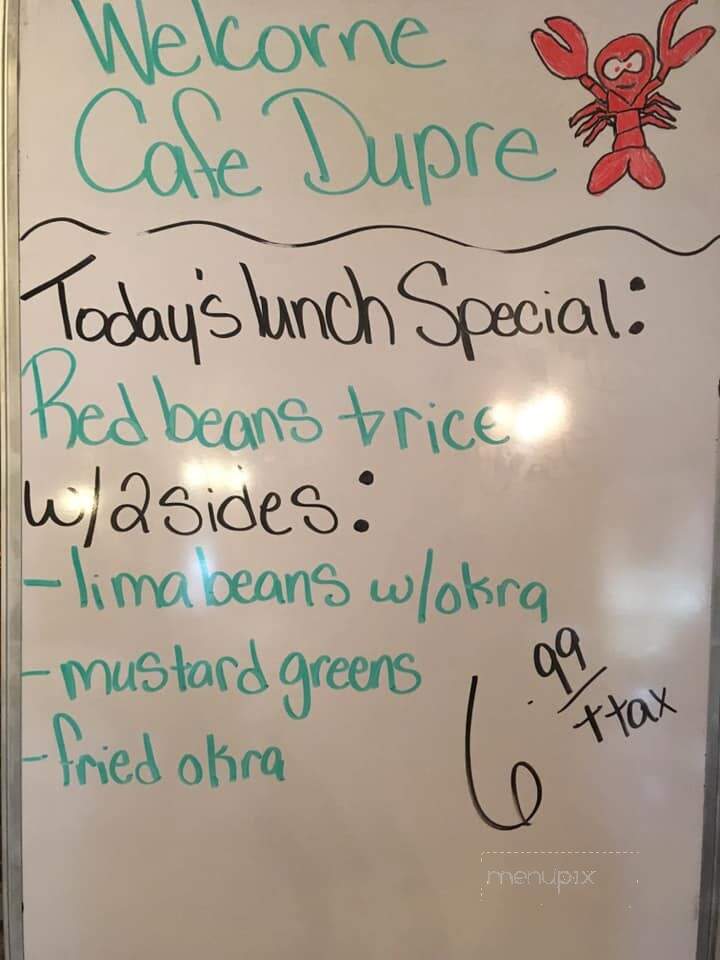 Welcome
Cafe Dupre
Today's lunch Special:
Red beans + rice
w/2 sides:
- lima beans w/okra
- mustard greens
- fried okra
6.99
+tax
menupix